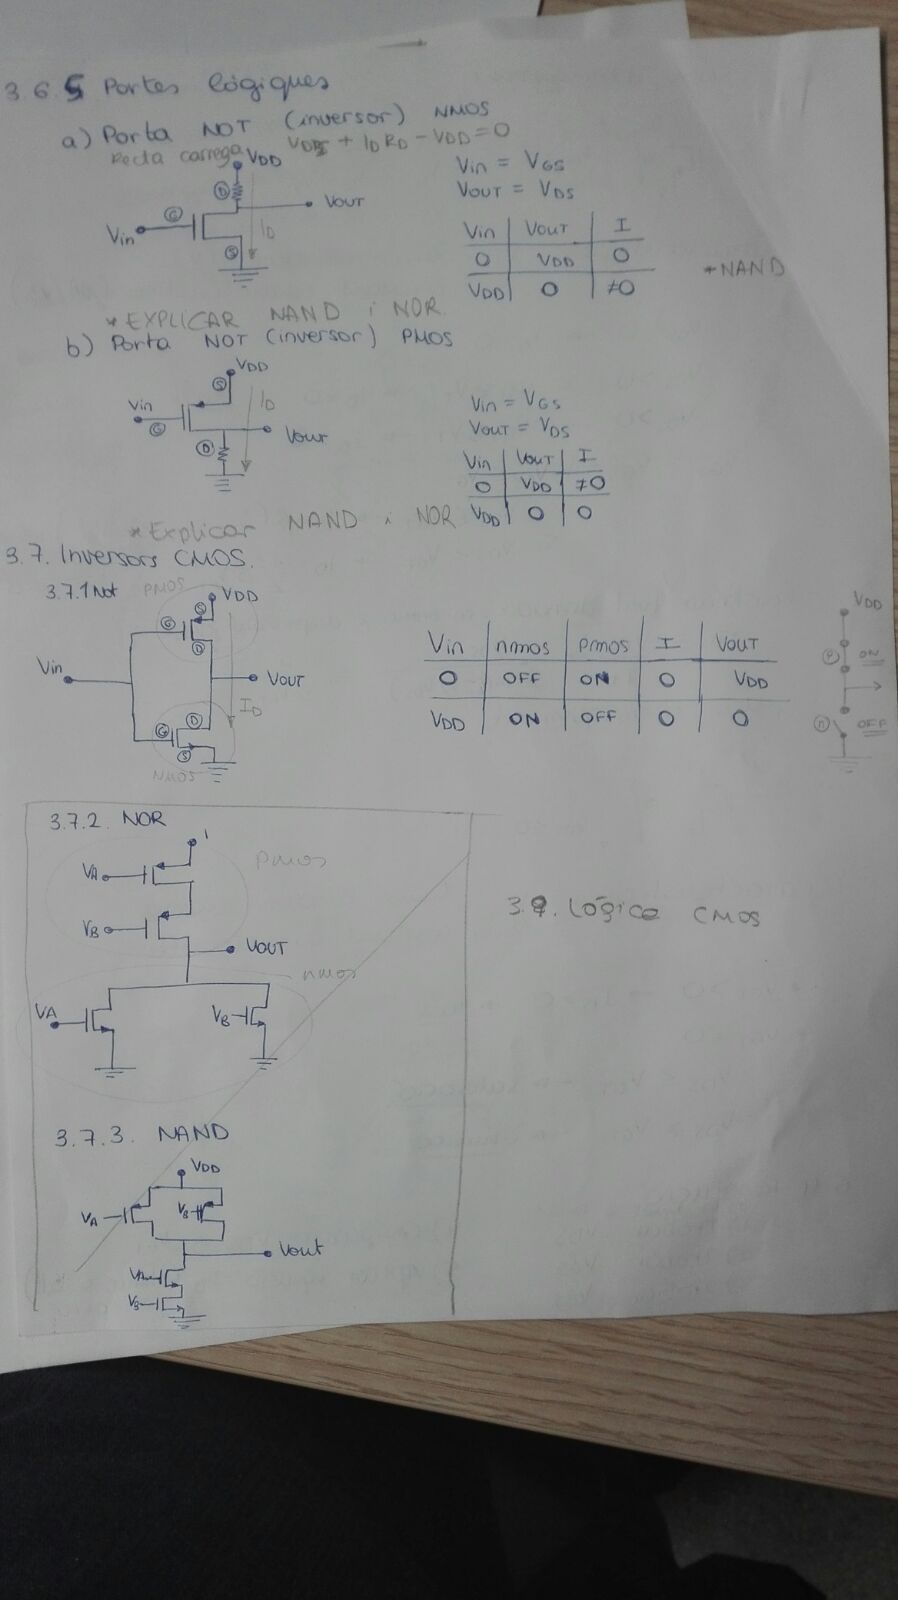 3.6.5 Portes lògiques
a) Porta NOT (inversor) NMOS
Recta carrega VDS + IDRD - VDD = 0
VDD
D
VOUT
G
Vin
ID
S
Vin = VGS
VOUT = VDS
Vin VOUT I
0 VDD 0
VDD 0 ≠0
*NAND
* EXPLICAR NAND i NOR.
b) Porta NOT (inversor) PMOS
VDD
S
Vin
ID
G
Vout
D
Vin = VGS
VOUT = VDS
Vin VOUT I
0 VDD ≠0
VDD 0 0
*Explicar NAND i NOR
3.7. Inversors CMOS.
3.7.1 Not PMOS
VDD
S
G
D
Vin
VOUT
ID
D
G
S
NMOS
Vin nmos pmos I VOUT
0 OFF ON 0 VDD
VDD ON OFF 0 0
VDD
P ON
n OFF
3.7.2. NOR
VA
pmos
VB
VOUT
nmos
VA
VB
3.7.3. NAND
VDD
VA
VB
Vout
VA
VB
Lógica CMOS